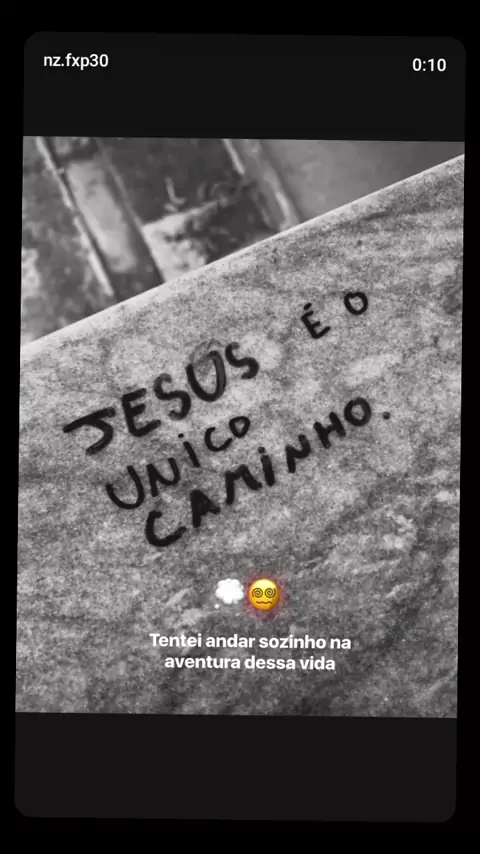 nz.fxp30
0:10
JESUS É O
UNICO
CAMINHO.
Tentei andar sozinho na
aventura dessa vida